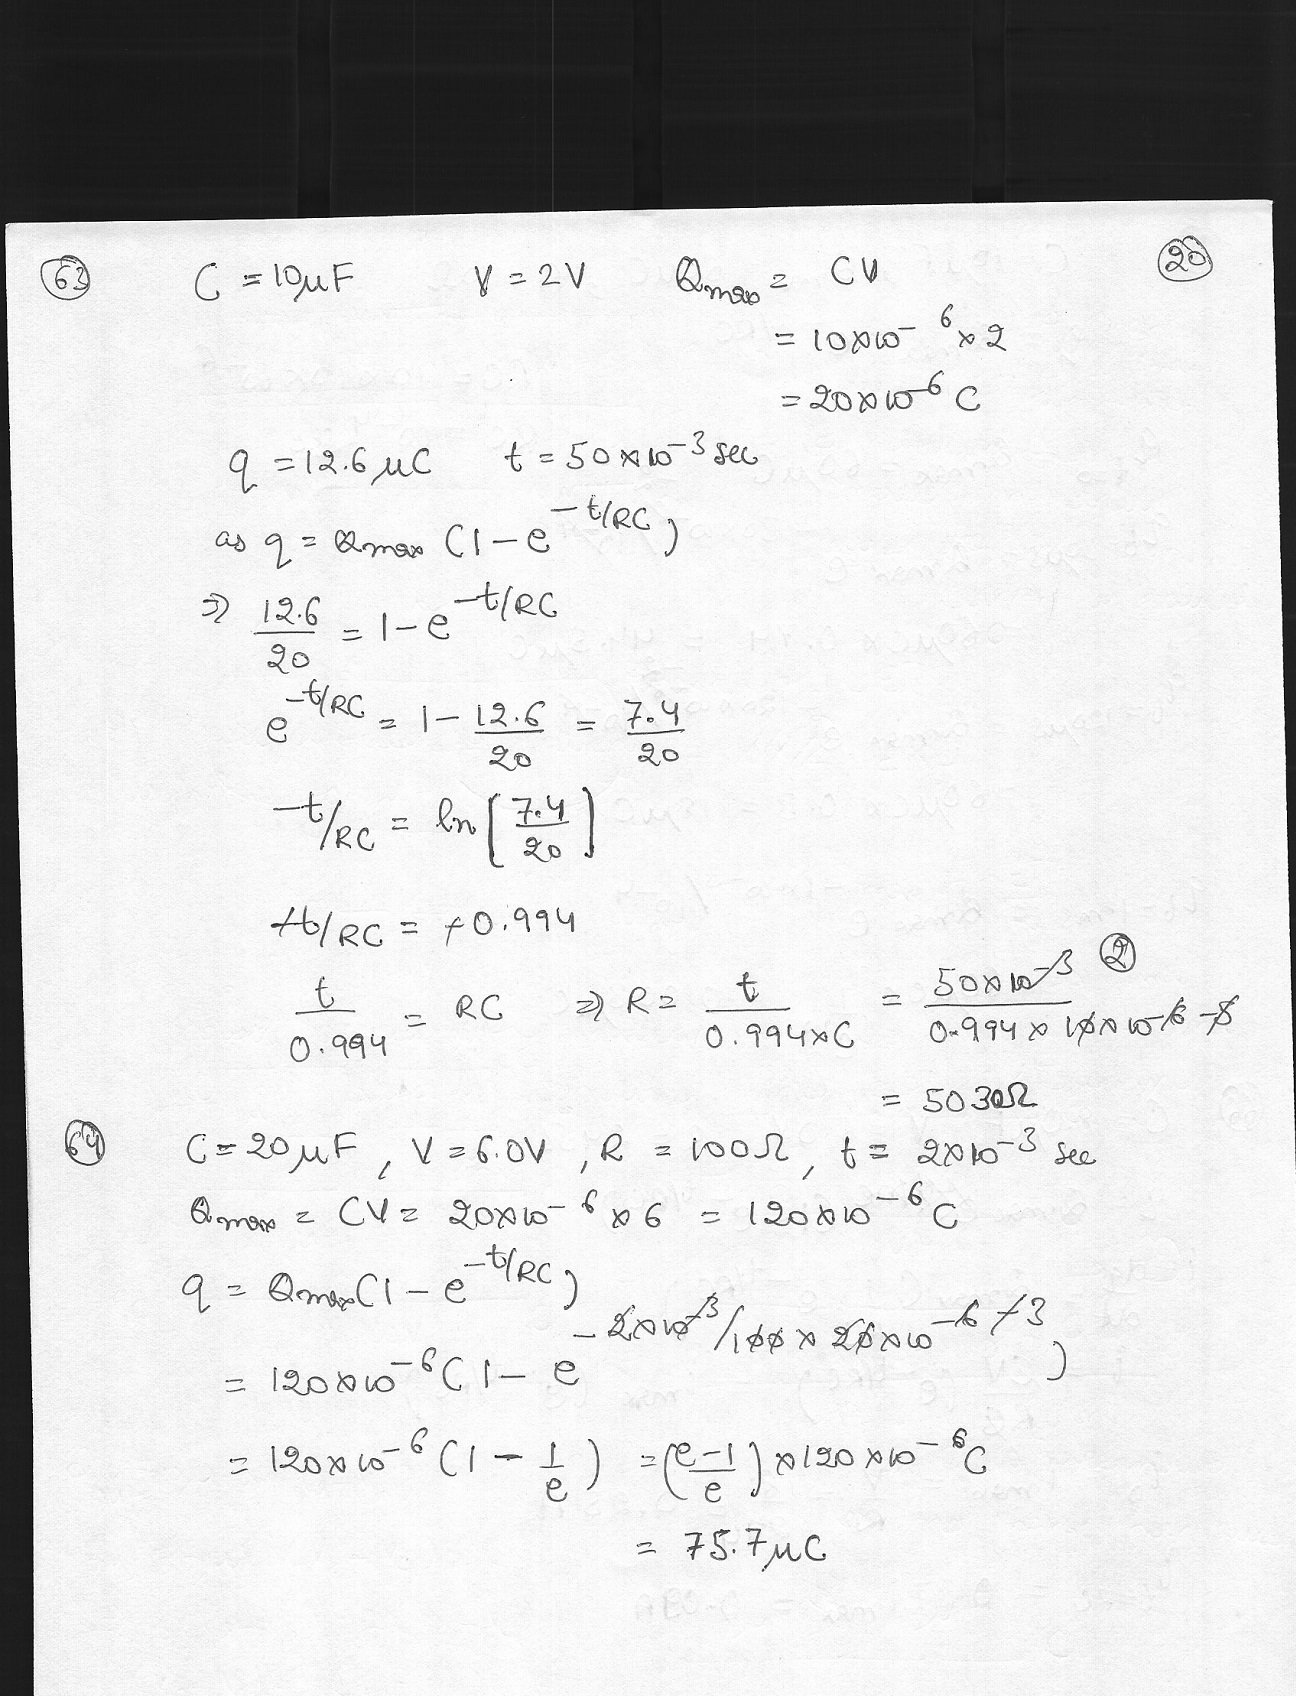 63 C = 10μF V = 2V Qmax = CV 20
= 10×10⁻⁶×2
= 20×10⁻⁶ C
q = 12.6 μC t = 50×10⁻³ sec
as q = Qmax (1 − e^−t/RC)
⇒ 12.6/20 = 1 − e^−t/RC
e^−t/RC = 1 − 12.6/20 = 7.4/20
−t/RC = ln[7.4/20]
−t/RC = −0.994
t/0.994 = RC ⇒ R = t/0.994×C = 50×10⁻³/0.994×10×10⁻⁶ ⁻⁵ 2
= 5030Ω
64 C = 20μF, V = 6.0V, R = 100Ω, t = 2×10⁻³ sec
Qmax = CV = 20×10⁻⁶×6 = 120×10⁻⁶ C
q = Qmax(1 − e^−t/RC)
= 120×10⁻⁶(1 − e^−2×10⁻³/100×20×10⁻⁶ ⁻³)
= 120×10⁻⁶(1 − 1/e) = (e−1/e)×120×10⁻⁶C
= 75.7μC